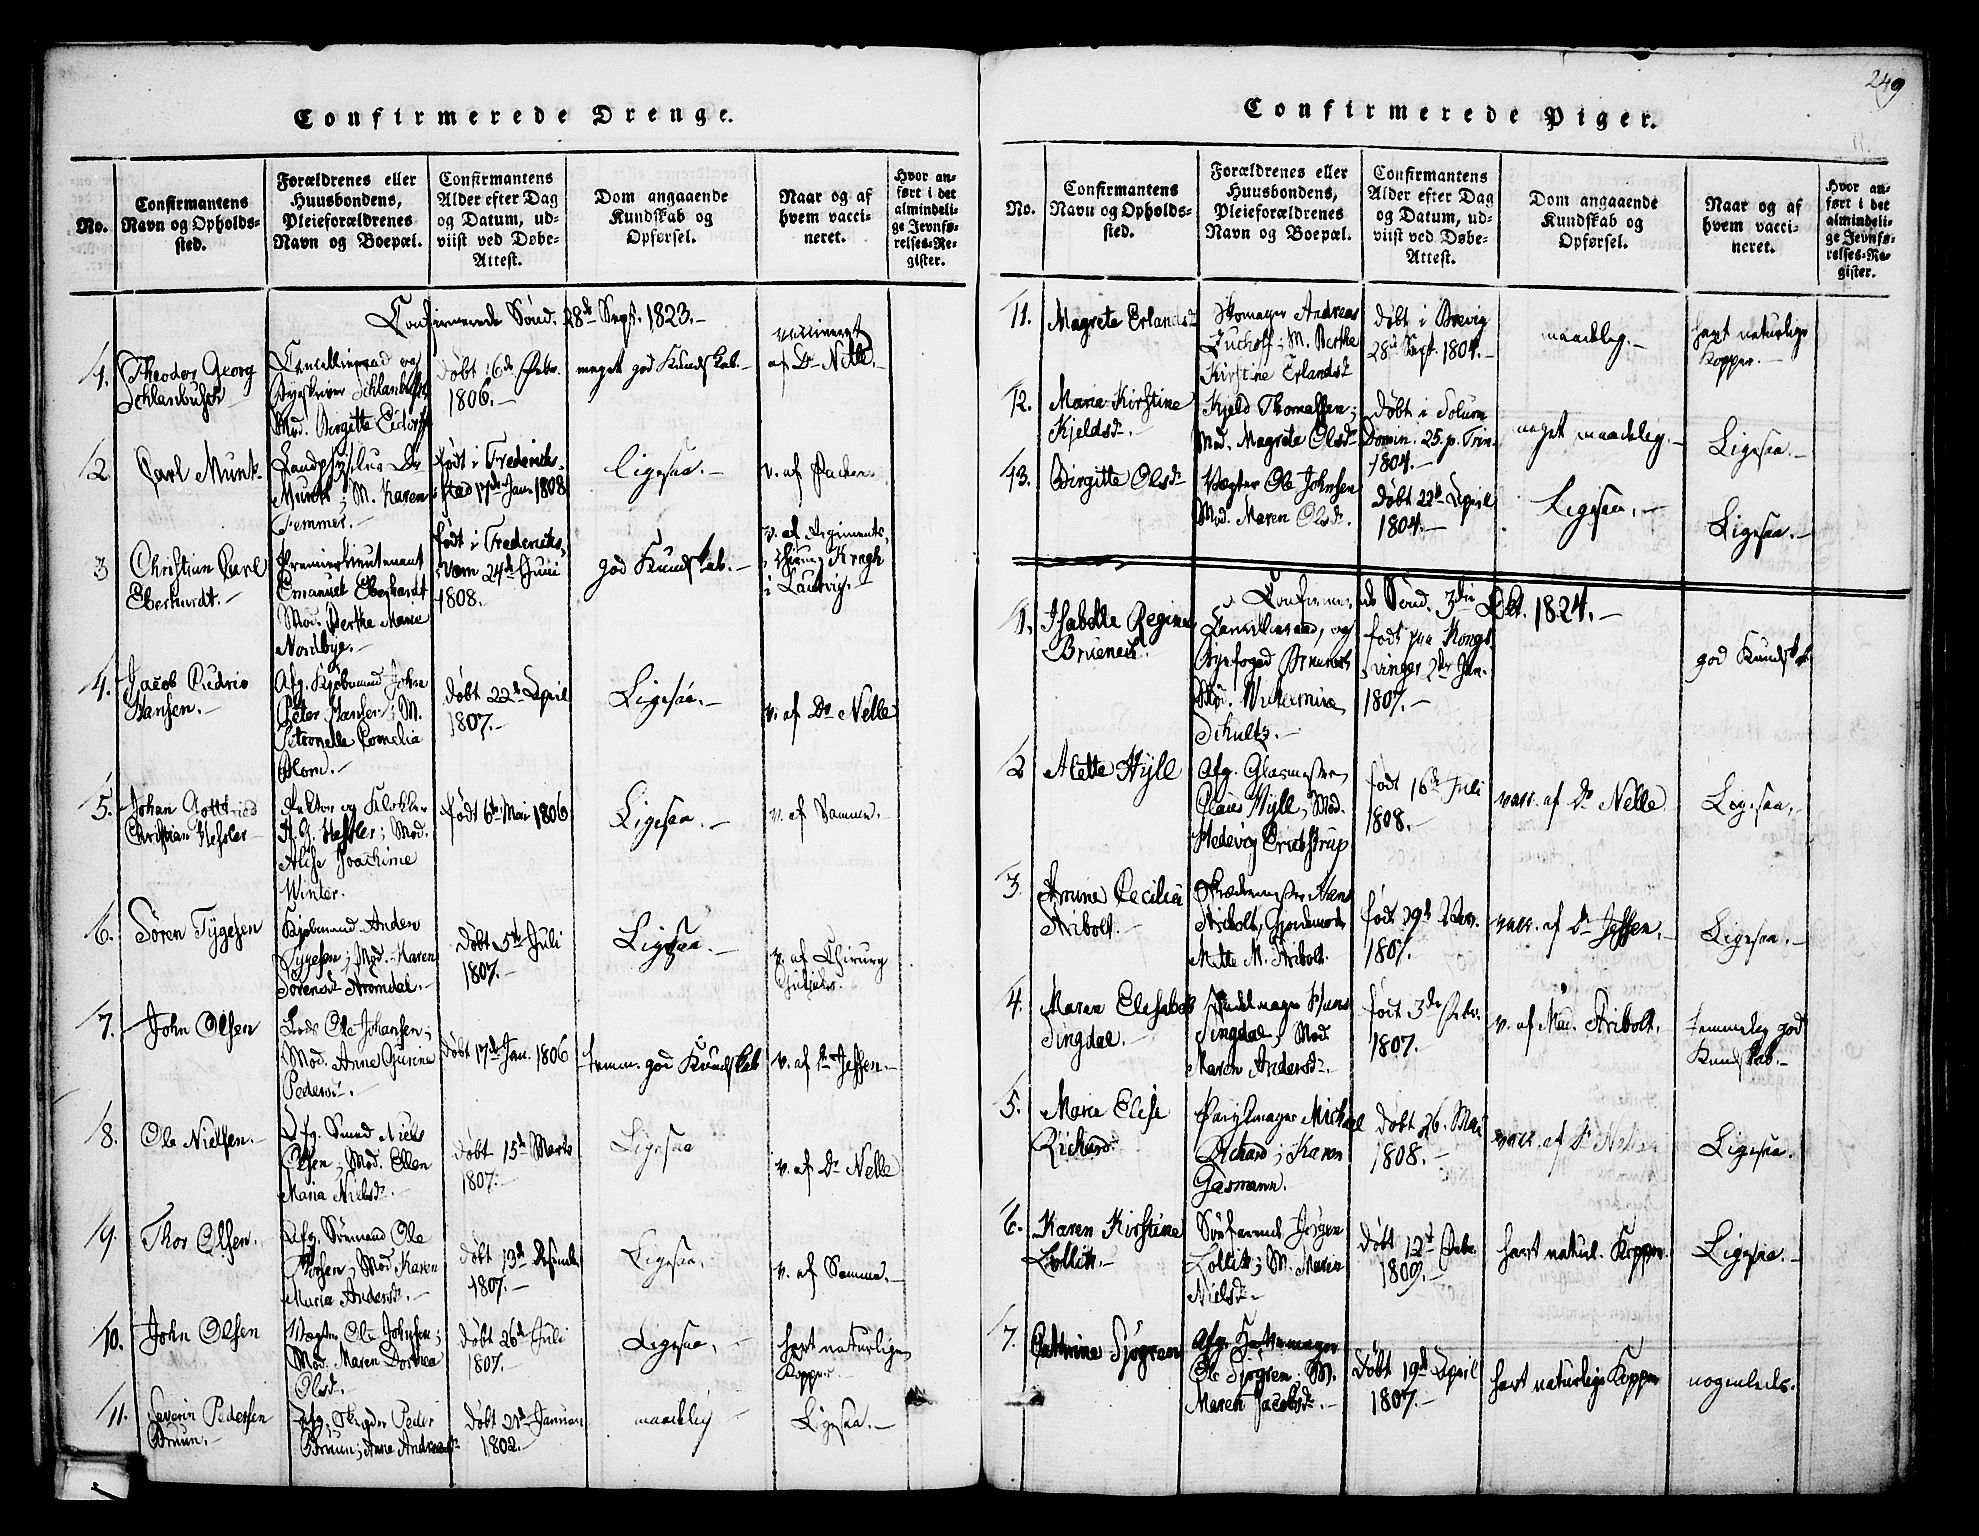 Confirmerede Drenge.
No.
Confirmantens
Navn og Opholds-
sted.
Forældrenes eller
Huusbondens,
Pleieforældrenes
Navn og Boepæl.
Confirmantens
Alder efter Dag
og Datum, ud-
viist ved Døbe-
Attest.
Dom angaaende
Kundskab og
Opførsel.
Naar og af
hvem vacci-
neret.
Hvor an-
ført i det
almindeli-
ge Jevnfø-
relses-Re-
gister.
Confirmerede Sønd. 28de Sept. 1823.-
1.
Theodor Georg
Schlanbusch
Cancelliraad og
Byskriver Schlanbusch
Mod. Birgitte
Døbt 6de Febr.
1806.-
meget god Kundskab.-
vaccineret
af Dr Nelle.-
2
Carl Munk.
Landphysicus Dr
Munk; M. Karen
Femmer.-
født i Frederik-
stad 17de Jan. 1808
Ligesaa.-
v. af
3
Christian Carl
Eberhardt.-
Premierlieutenant
Emanuel Eberhardt
Mod. Berthe Marie
Nordbye.-
født i Frederiks-
værn 24de Juni
1808.-
god Kundskab.-
v. af Regiments-
chirurg Kragh
i Laurvig.-
4.
Jacob Cudrio
Hansen.-
Afg. Kjøbmand John
Peter Hansen; M.
Petronelle Cornelia
Blom.-
Døbt 22de April
1807.-
Ligesaa.-
v. af Dr Nelle
5.
Johan Gottfried
Christian Hessler
og Klokker
Hessler; Mod.
Alise Joachime
Winter.
født 6de Mai 1806
Ligesaa.-
v. af Samme.-
6.
Sören Tygesen
Kjøbmand Anders
Tygesen; Mod. Karen
Sørensdr Aromdal.-
Døbt 5te Juli
1807.-
Ligesaa.-
v. af Chirurg
7.
John Olsen
Lods Ole Johansen;
Mod. Anne Gurine
Pedersdr.-
Døbt 17de Jan. 1806
temm. god Kundskab
v. af Dr Jessen.-
8.
Ole Nielsen.-
Afg. Smed Niels
Olsen; Mod. Ellen
Maria Nielsdr.-
Døbt 15de Marts
1807.-
Ligesaa
v. af Dr Nelle
9.
Thor Olsen.
Afg. Sømand Ole
Mod Karen
Maria Andersdr.-
Døbt 19de
1807.-
Ligesaa.
v. af Samme.-
10.
John Olsen
Vægter Ole Johnsen;
Mod. Maren Dorthea
Olsdr.-
Døbt 26de Juli
1807.-
Ligesaa,-
havt naturlige
Kopper.-
11.
Severin Pedersen
Bruun.-
Afg. Peder
Bruun; Anne Andreasdr
Døbt 21de Januari
1802.-
maadelig-
Ligesaa.-
249
Confirmerede Piger.
No.
Confirmantens
Navn og Opholds-
sted.
Forældrenes eller
Huusbondens,
Pleieforældrenes
Navn og Boepæl.
Confirmantens
Alder efter Dag
og Datum, ud-
viist ved Døbe-
Attest.
Dom angaaende
Kundskab og
Opførsel.
Naar og af
hvem vacci-
neret.
Hvor an-
ført i det
almindeli-
ge Jevnfø-
relses-Re-
gister.
11.
Magrete Erlandsdr
Skomager Andreas
M. Berthe
Kirstine Erlandsdr
Døbt i Brevig
28de Sept. 1804.-
maadelig.-
havt naturlige
Kopper.-
12.
Maria Kirstine
Kjeldsdr.-
Kjeld Thomassen;
Mod. Magrete Olsdr
Døbt i Solum
Domin. 25. p. Trin.
1804.-
meget maadelig.-
Ligesaa.-
13.
Birgitte Olsdr
Vægter Ole Johnsen
Mod. Maren Olsdr.
Døbt 22de April
1804.-
Ligesaa.-
Ligesaa.-
Confirmerede Sønd. 3die Oct. 1824.-
1.
Isabelle Regine
Bruenech.
Cancelliraad, og
Byefoged
Mod. Wilhelmine
Schultz.-
født paa Kongs-
vinger 2den Jan.
1807.-
god Kundskab
2
Alette Hyll
Afg. Glasmester
Claus Hyll; Mod.
Hedevig
født 16de Juli
1808.-
vacc. af Dr Nelle
Ligesaa.-
3.
Anne Cecilia
Aribolt.-
Hans
Aribolt, Gjordemoder
Mette M. Aribolt.
født 29de
1807.-
vacc. af Dr Jessen.-
Ligesaa.-
4.
Maren Elisabeth
Tingdal.-
Hans
Tingdal, Mod.
Maren Andersdr.-
født 3de Febr.
1807.-
v. af Mad. Aribolt.-
temmelig god
Kundskab.-
5.
Marie Elise
Richard.
Parykmager Michael
Richard; Karen
Gasmann.
Døbt 26. Mai
1808.-
vacc. af Dr Nelle
Ligesaa.-
6.
Karen Kirstine
Lollick.-
Søefarende Jørgen
Lollick; M. Maria
Nielsdr.-
Døbt 12te Febr.
1809.-
havt natul. Kopper.
Ligesaa.-
7.
Cathrine Sjøgren
Afg. Hattemager
Ole Sjøgren; M.
Maren Jacobsdr.-
Døbt 19de April
1807.-
havt naturlige Kopper
nogenleds.